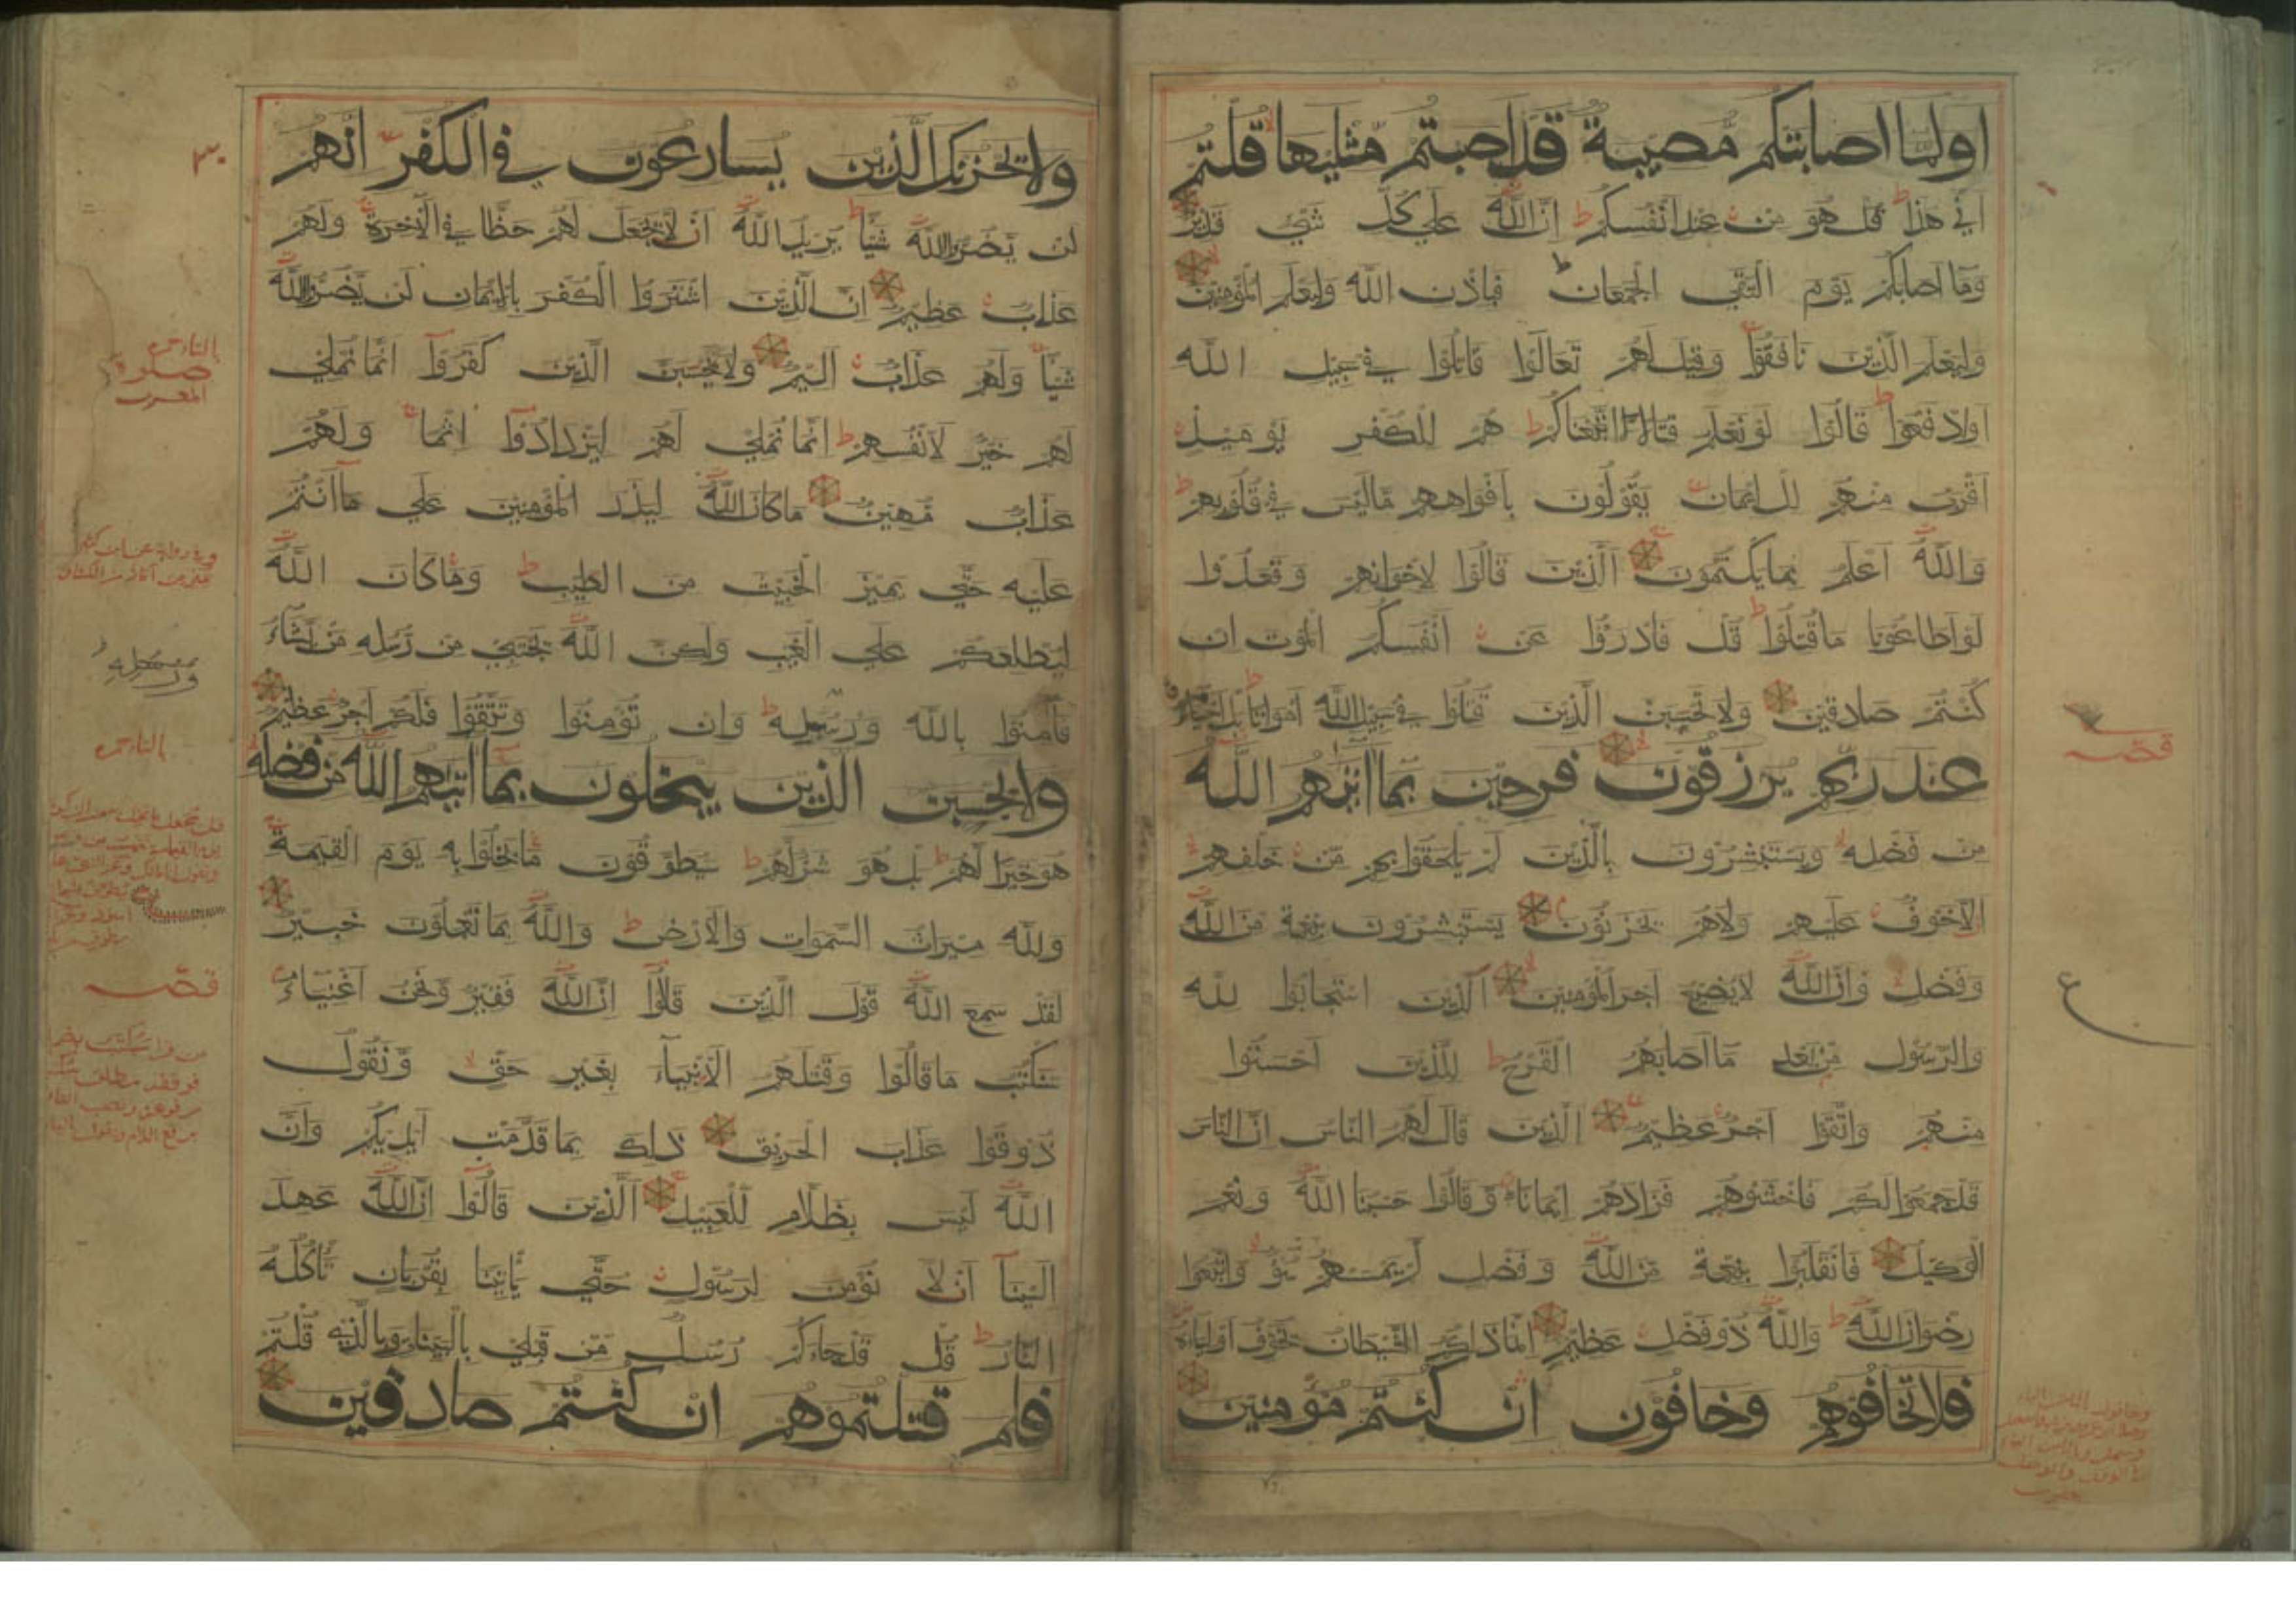 اولما اصابتكم مصيبة قد اصبتم مثليها قلتم
اني هذا قل هو من عند انفسكم ان الله علي كل شي قدير
وما اصابكم يوم التقي الجمعان فباذن الله وليعلم المؤمنين
وليعلم الذين نافقوا وقيل لهم تعالوا قاتلوا في سبيل الله
اوادفعوا قالوا لو نعلم قتالا لاتبعناكم هم للكفر يومئذ
اقرب منهم للايمان يقولون بافواههم ما ليس في قلوبهم
والله اعلم بما يكتمون الذين قالوا لاخوانهم وقعدوا
لو اطاعونا ما قتلوا قل فادرؤا عن انفسكم الموت ان
كنتم صادقين ولا تحسبن الذين قتلوا في سبيل الله امواتا بل احياء
عند ربهم يرزقون فرحين بما اتيهم الله
من فضله ويستبشرون بالذين لم يلحقوا بهم من خلفهم
الا خوف عليهم ولا هم يحزنون يستبشرون بنعمة من الله
وفضل وان الله لا يضيع اجر المؤمنين الذين استجابوا لله
والرسول من بعد ما اصابهم القرح للذين احسنوا
منهم واتقوا اجر عظيم الذين قال لهم الناس ان الناس
قد جمعوا لكم فاخشوهم فزادهم ايمانا وقالوا حسبنا الله ونعم
الوكيل فانقلبوا بنعمة من الله وفضل لم يمسسهم سوء واتبعوا
رضوان الله والله ذو فضل عظيم انما ذلكم الشيطان يخوف اولياءه
فلا تخافوهم وخافون ان كنتم مؤمنين
قصه
ع
ولا يحزنك الذين يسارعون في الكفر انهم
لن يضروا الله شيئا يريد الله ان لا يجعل لهم حظا في الاخرة ولهم
عذاب عظيم ان الذين اشتروا الكفر بالايمان لن يضروا الله
شيئا ولهم عذاب اليم ولا يحسبن الذين كفروا انما نملي
لهم خير لانفسهم انما نملي لهم ليزدادوا اثما ولهم
عذاب مهين ما كان الله ليذر المؤمنين علي ما انتم
عليه حتي يميز الخبيث من الطيب وما كان الله
ليطلعكم علي الغيب ولكن الله يجتبي من رسله من يشاء
فامنوا بالله ورسله وان تؤمنوا وتتقوا فلكم اجر عظيم
ولا يحسبن الذين يبخلون بما اتيهم الله من فضله
هو خيرا لهم بل هو شر لهم سيطوقون ما بخلوا به يوم القيمة
ولله ميراث السموات والارض والله بما تعملون خبير
لقد سمع الله قول الذين قالوا ان الله فقير ونحن اغنياء
سنكتب ما قالوا وقتلهم الانبياء بغير حق ونقول
ذوقوا عذاب الحريق ذلك بما قدمت ايديكم وان
الله ليس بظلام للعبيد الذين قالوا ان الله عهد
الينا ان لا نؤمن لرسول حتي ياتينا بقربان تاكله
النار قل قد جاءكم رسل من قبلي بالبينات وبالذي قلتم
فلم قتلتموهم ان كنتم صادقين
٣٠
بالتاء حمزه
صلوة
المغرب
بالتاء حمزه
قصه